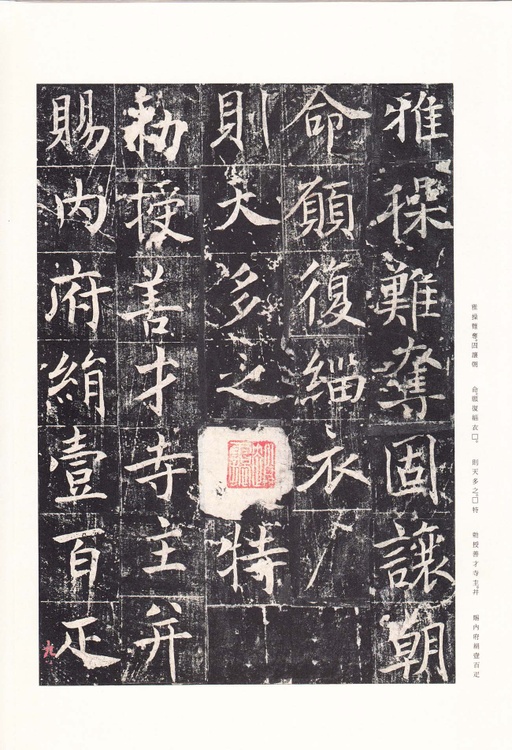 雅操難奪固讓朝
命願復緇衣
則天多之
特
勑授善才寺主并
賜内府絹壹百疋
九
雅操難奪固讓朝
命願復緇衣□
則天多之□特
勑授善才寺主并
賜内府絹壹百疋